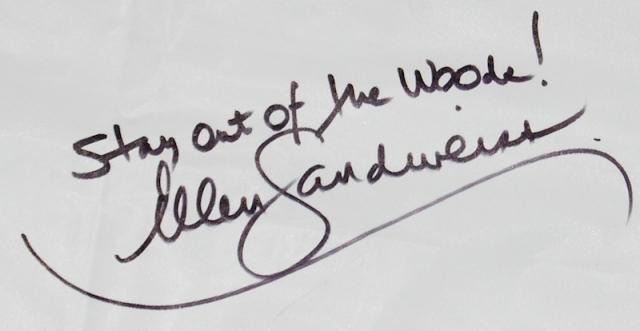 Stay out of the Woods!
Ellen Sandweiss